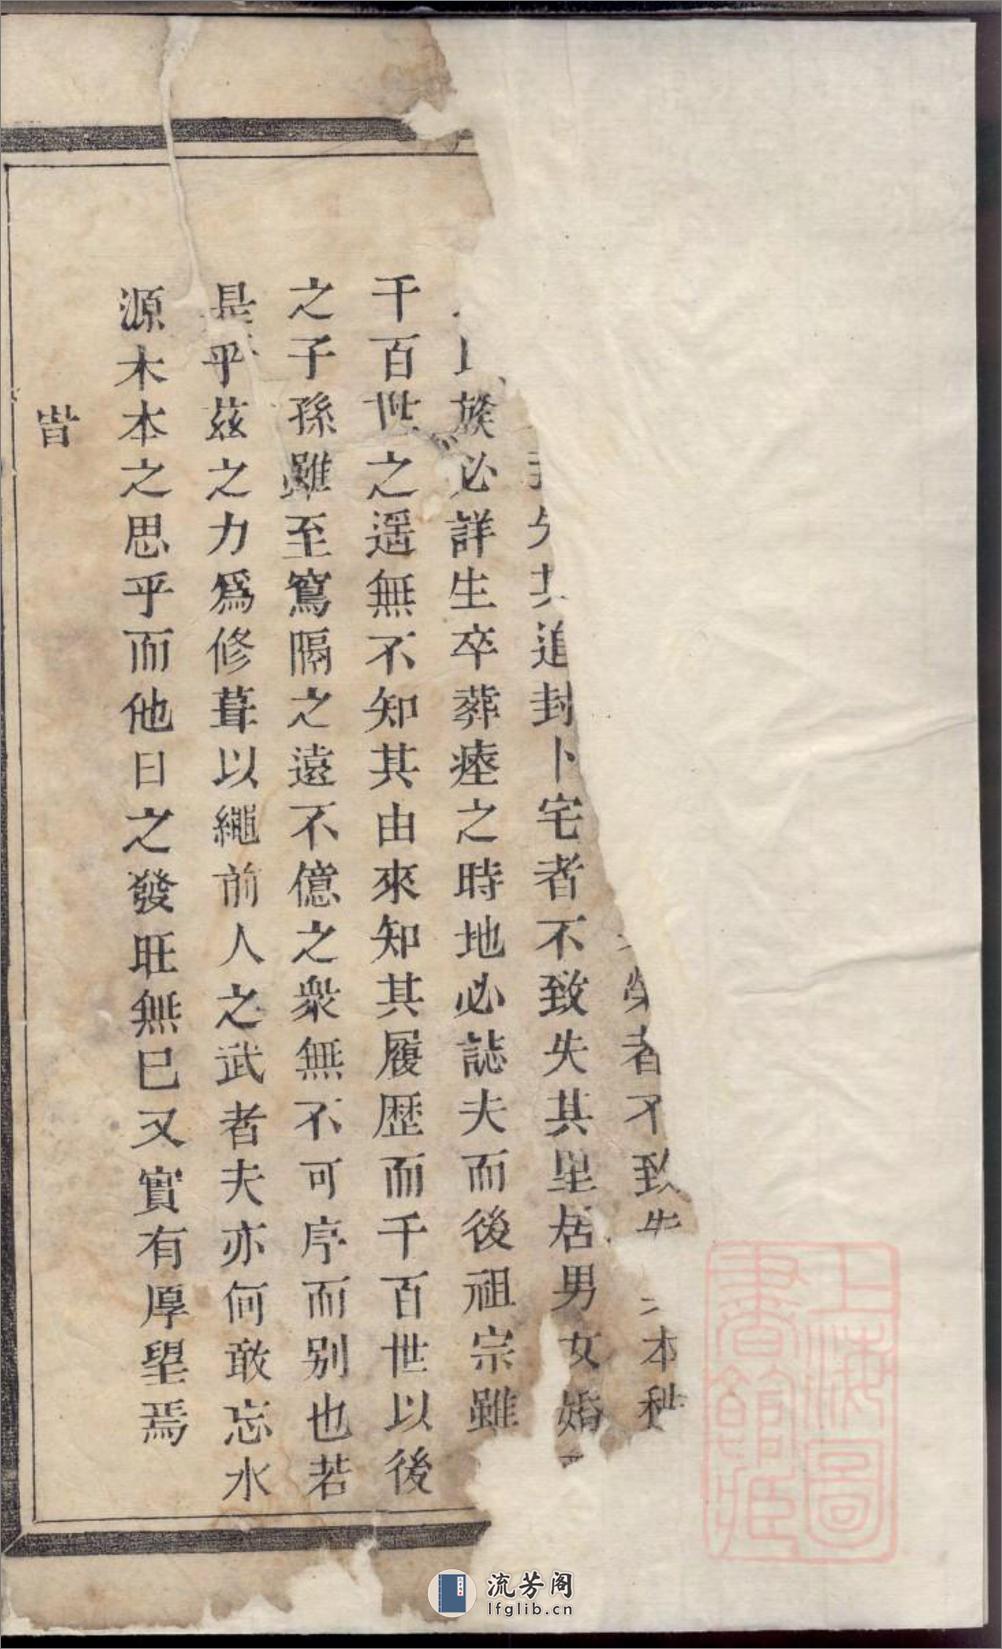 者不致失本
封卜宅者不致失其里居男女婚
族必詳生卒葬瘞之時地必誌夫而後祖宗雖
千百世之遥無不知其由來知其履歷而千百世以後
之子孫雖至窵隔之遠不億之衆無不可序而别也若
是乎兹之力為修葺以繩前人之武者夫亦何敢忘水
源木本之思乎而他日之發旺無已又實有厚望焉
峕
上海圖
書館藏
流芳阁
lfglib.cn